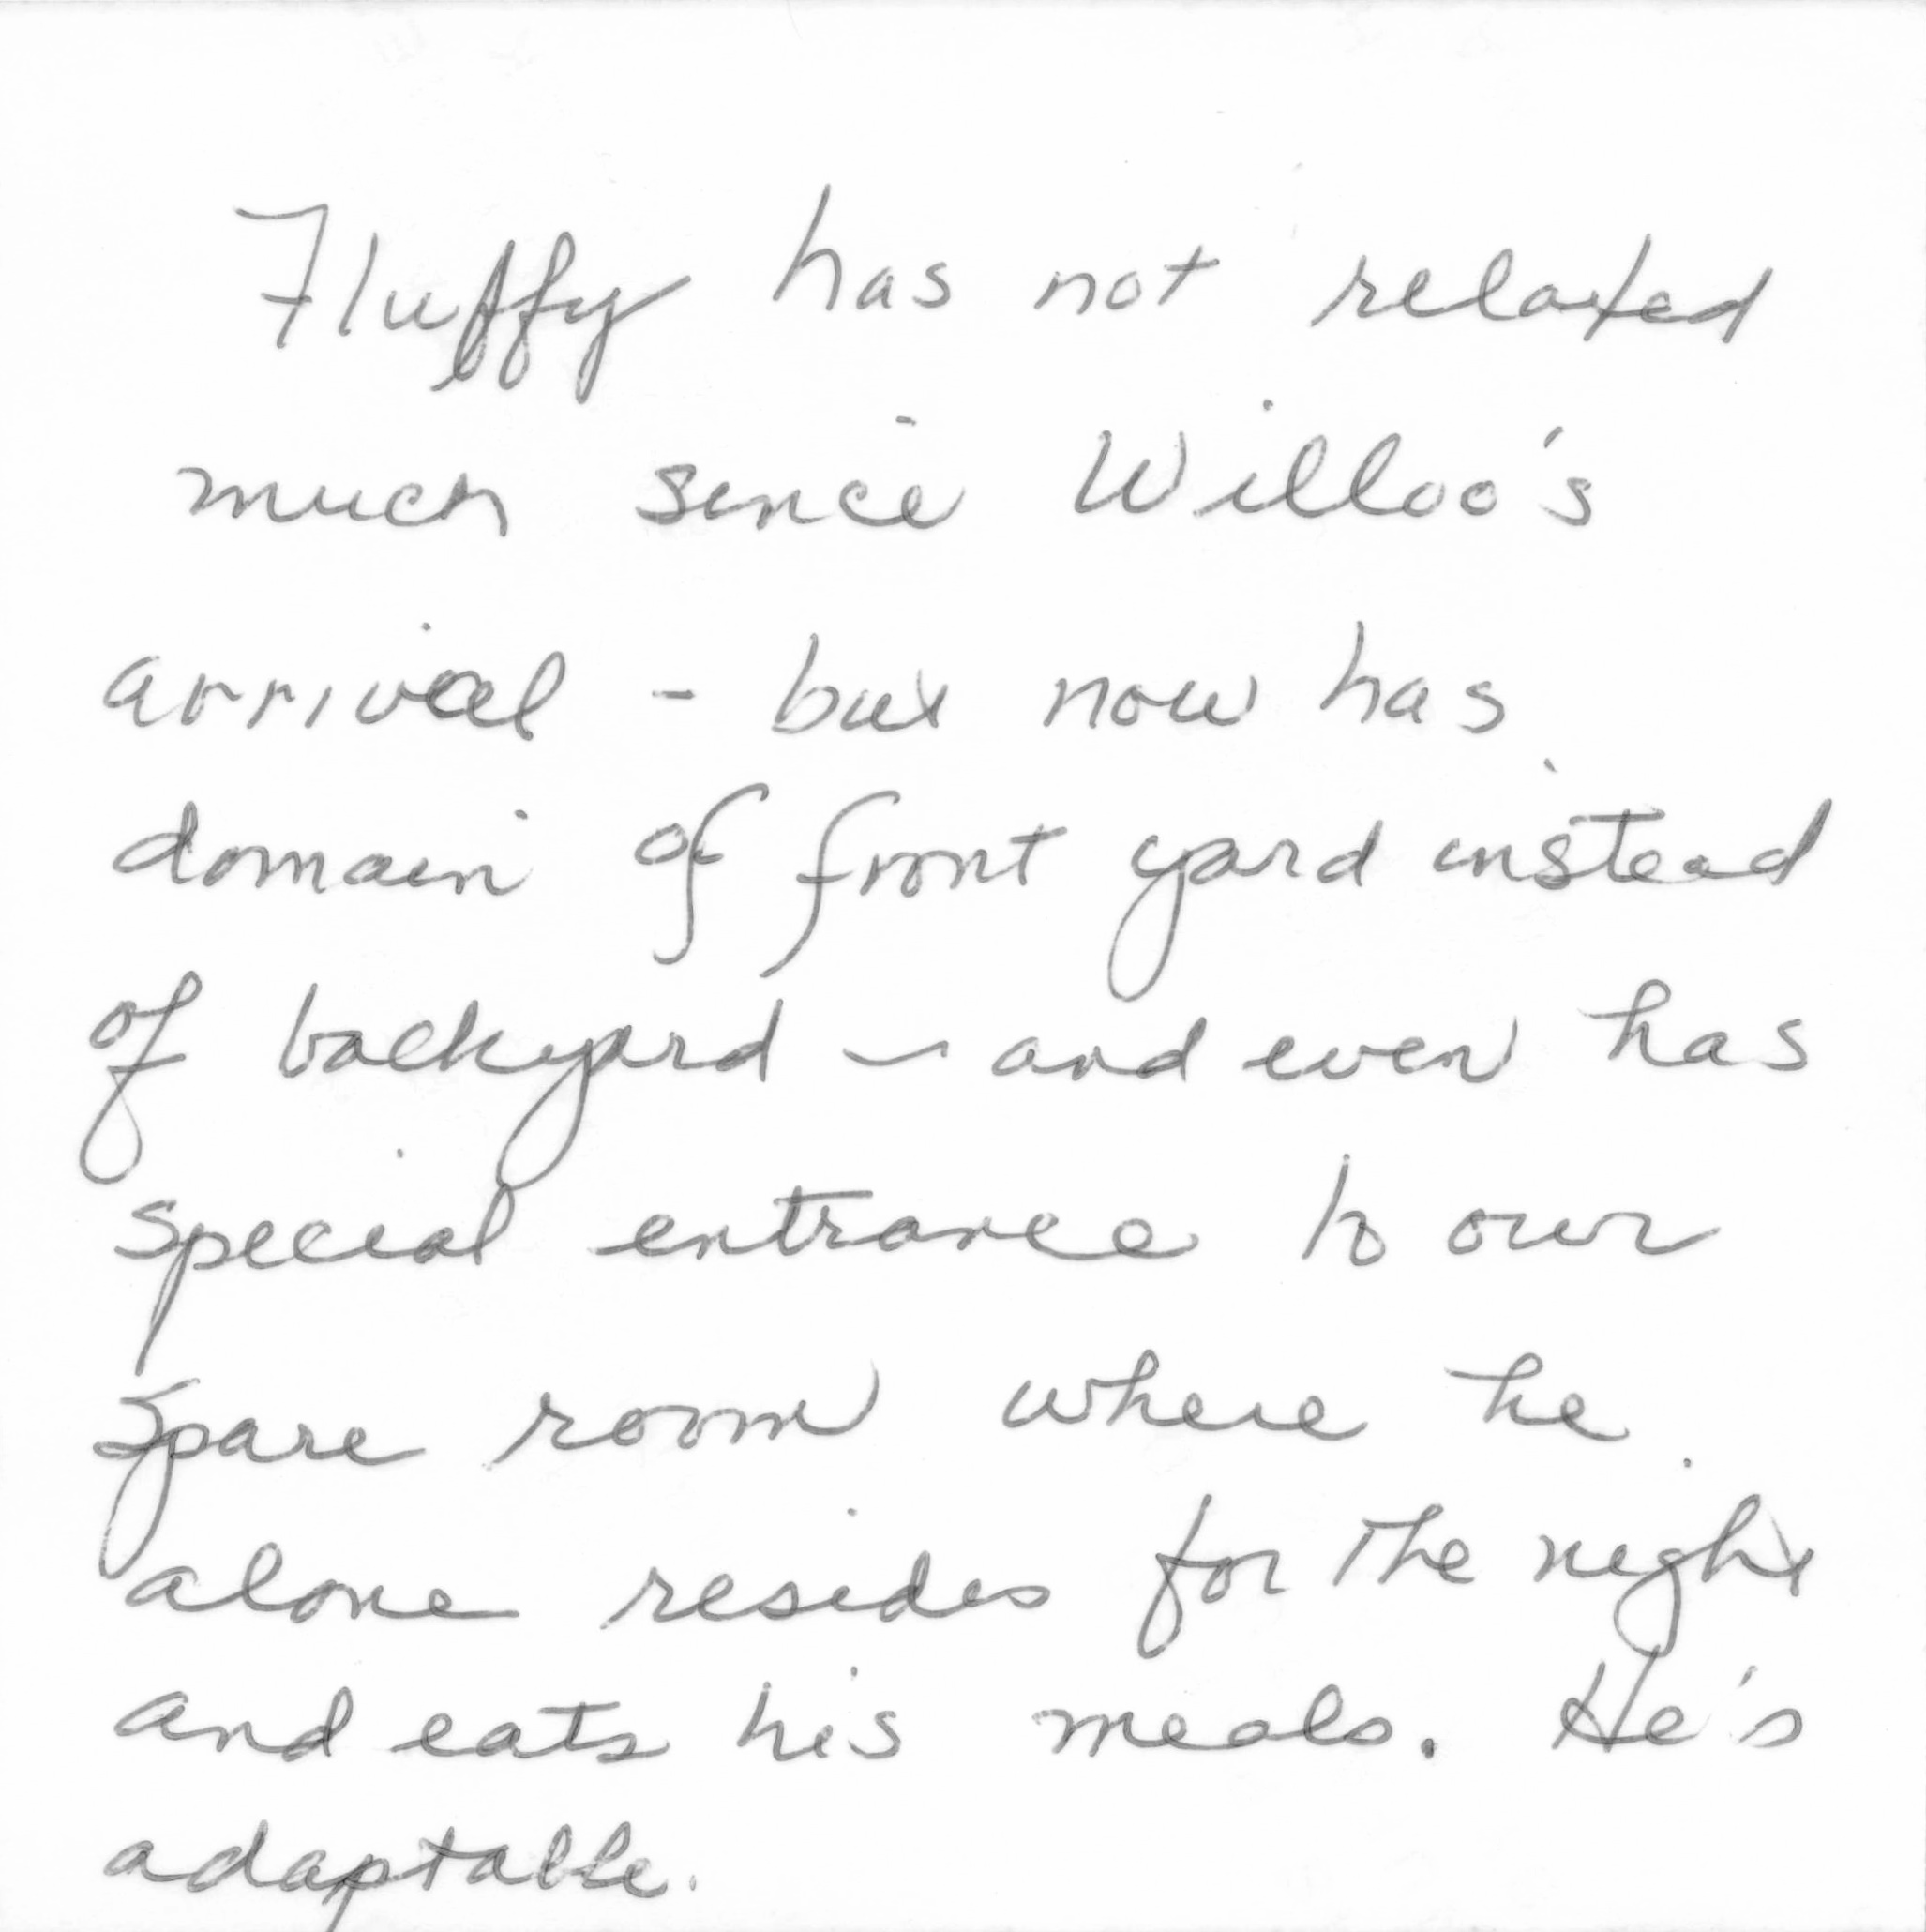 Fluffy has not relaxed
much since Willoo's
arrival - but now has
domain of front yard instead
of backyard - and even has
special entrance to our
spare room where he
alone resides for the night
and eats his meals. He's
adaptable.